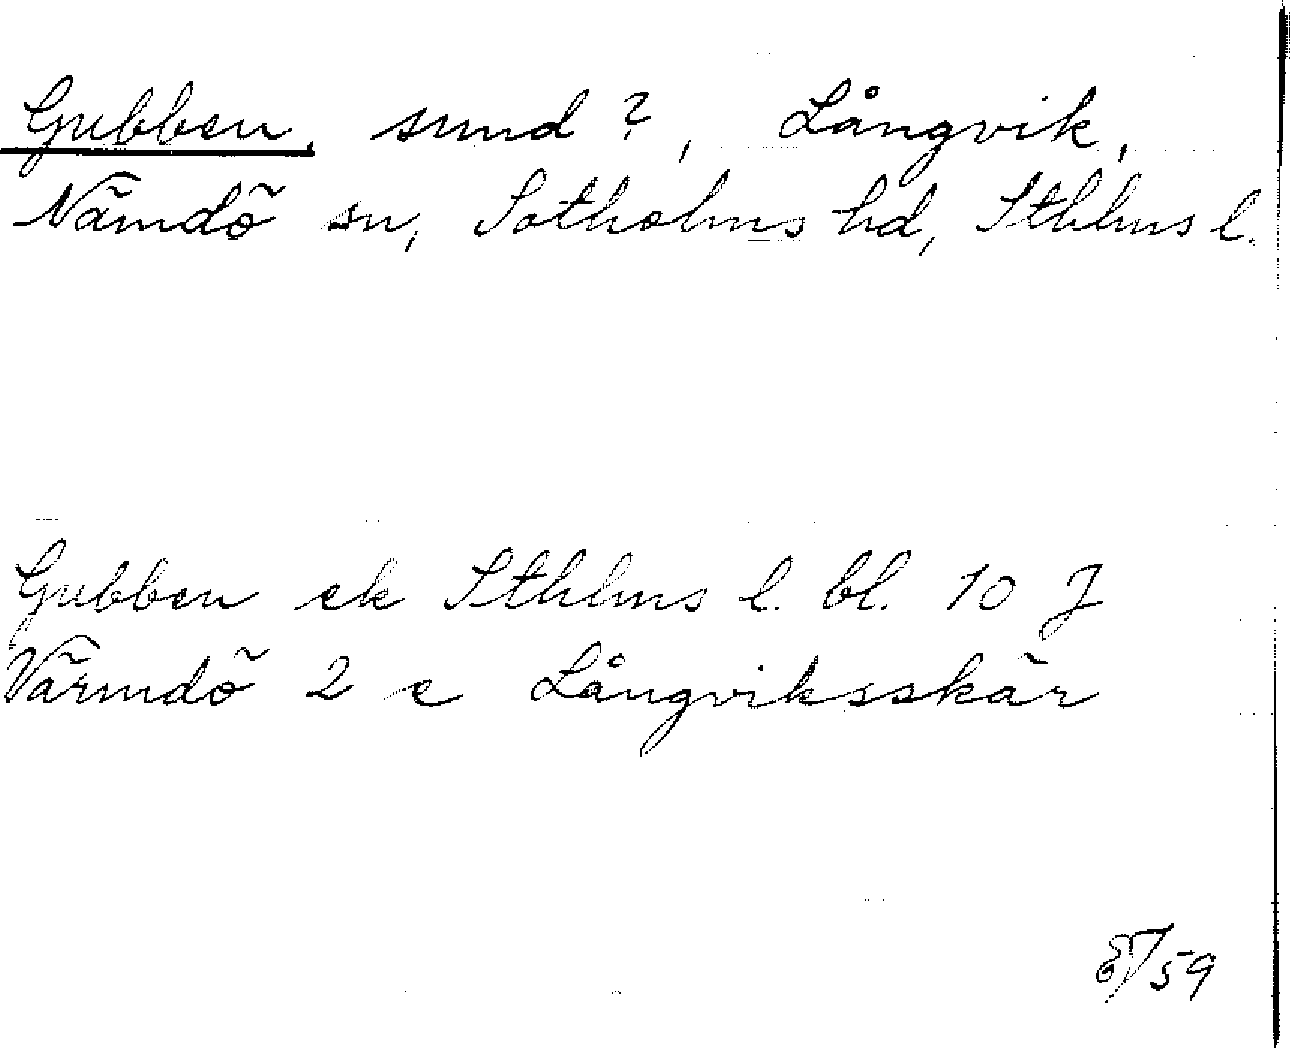 Gubben, sund?, Långvik,
Nämdö sn, Sotholms hd, Sthlms l.
Gubben ek Sthlms l. bl. 10 J
Värmdö 2 c Långviksskär
59